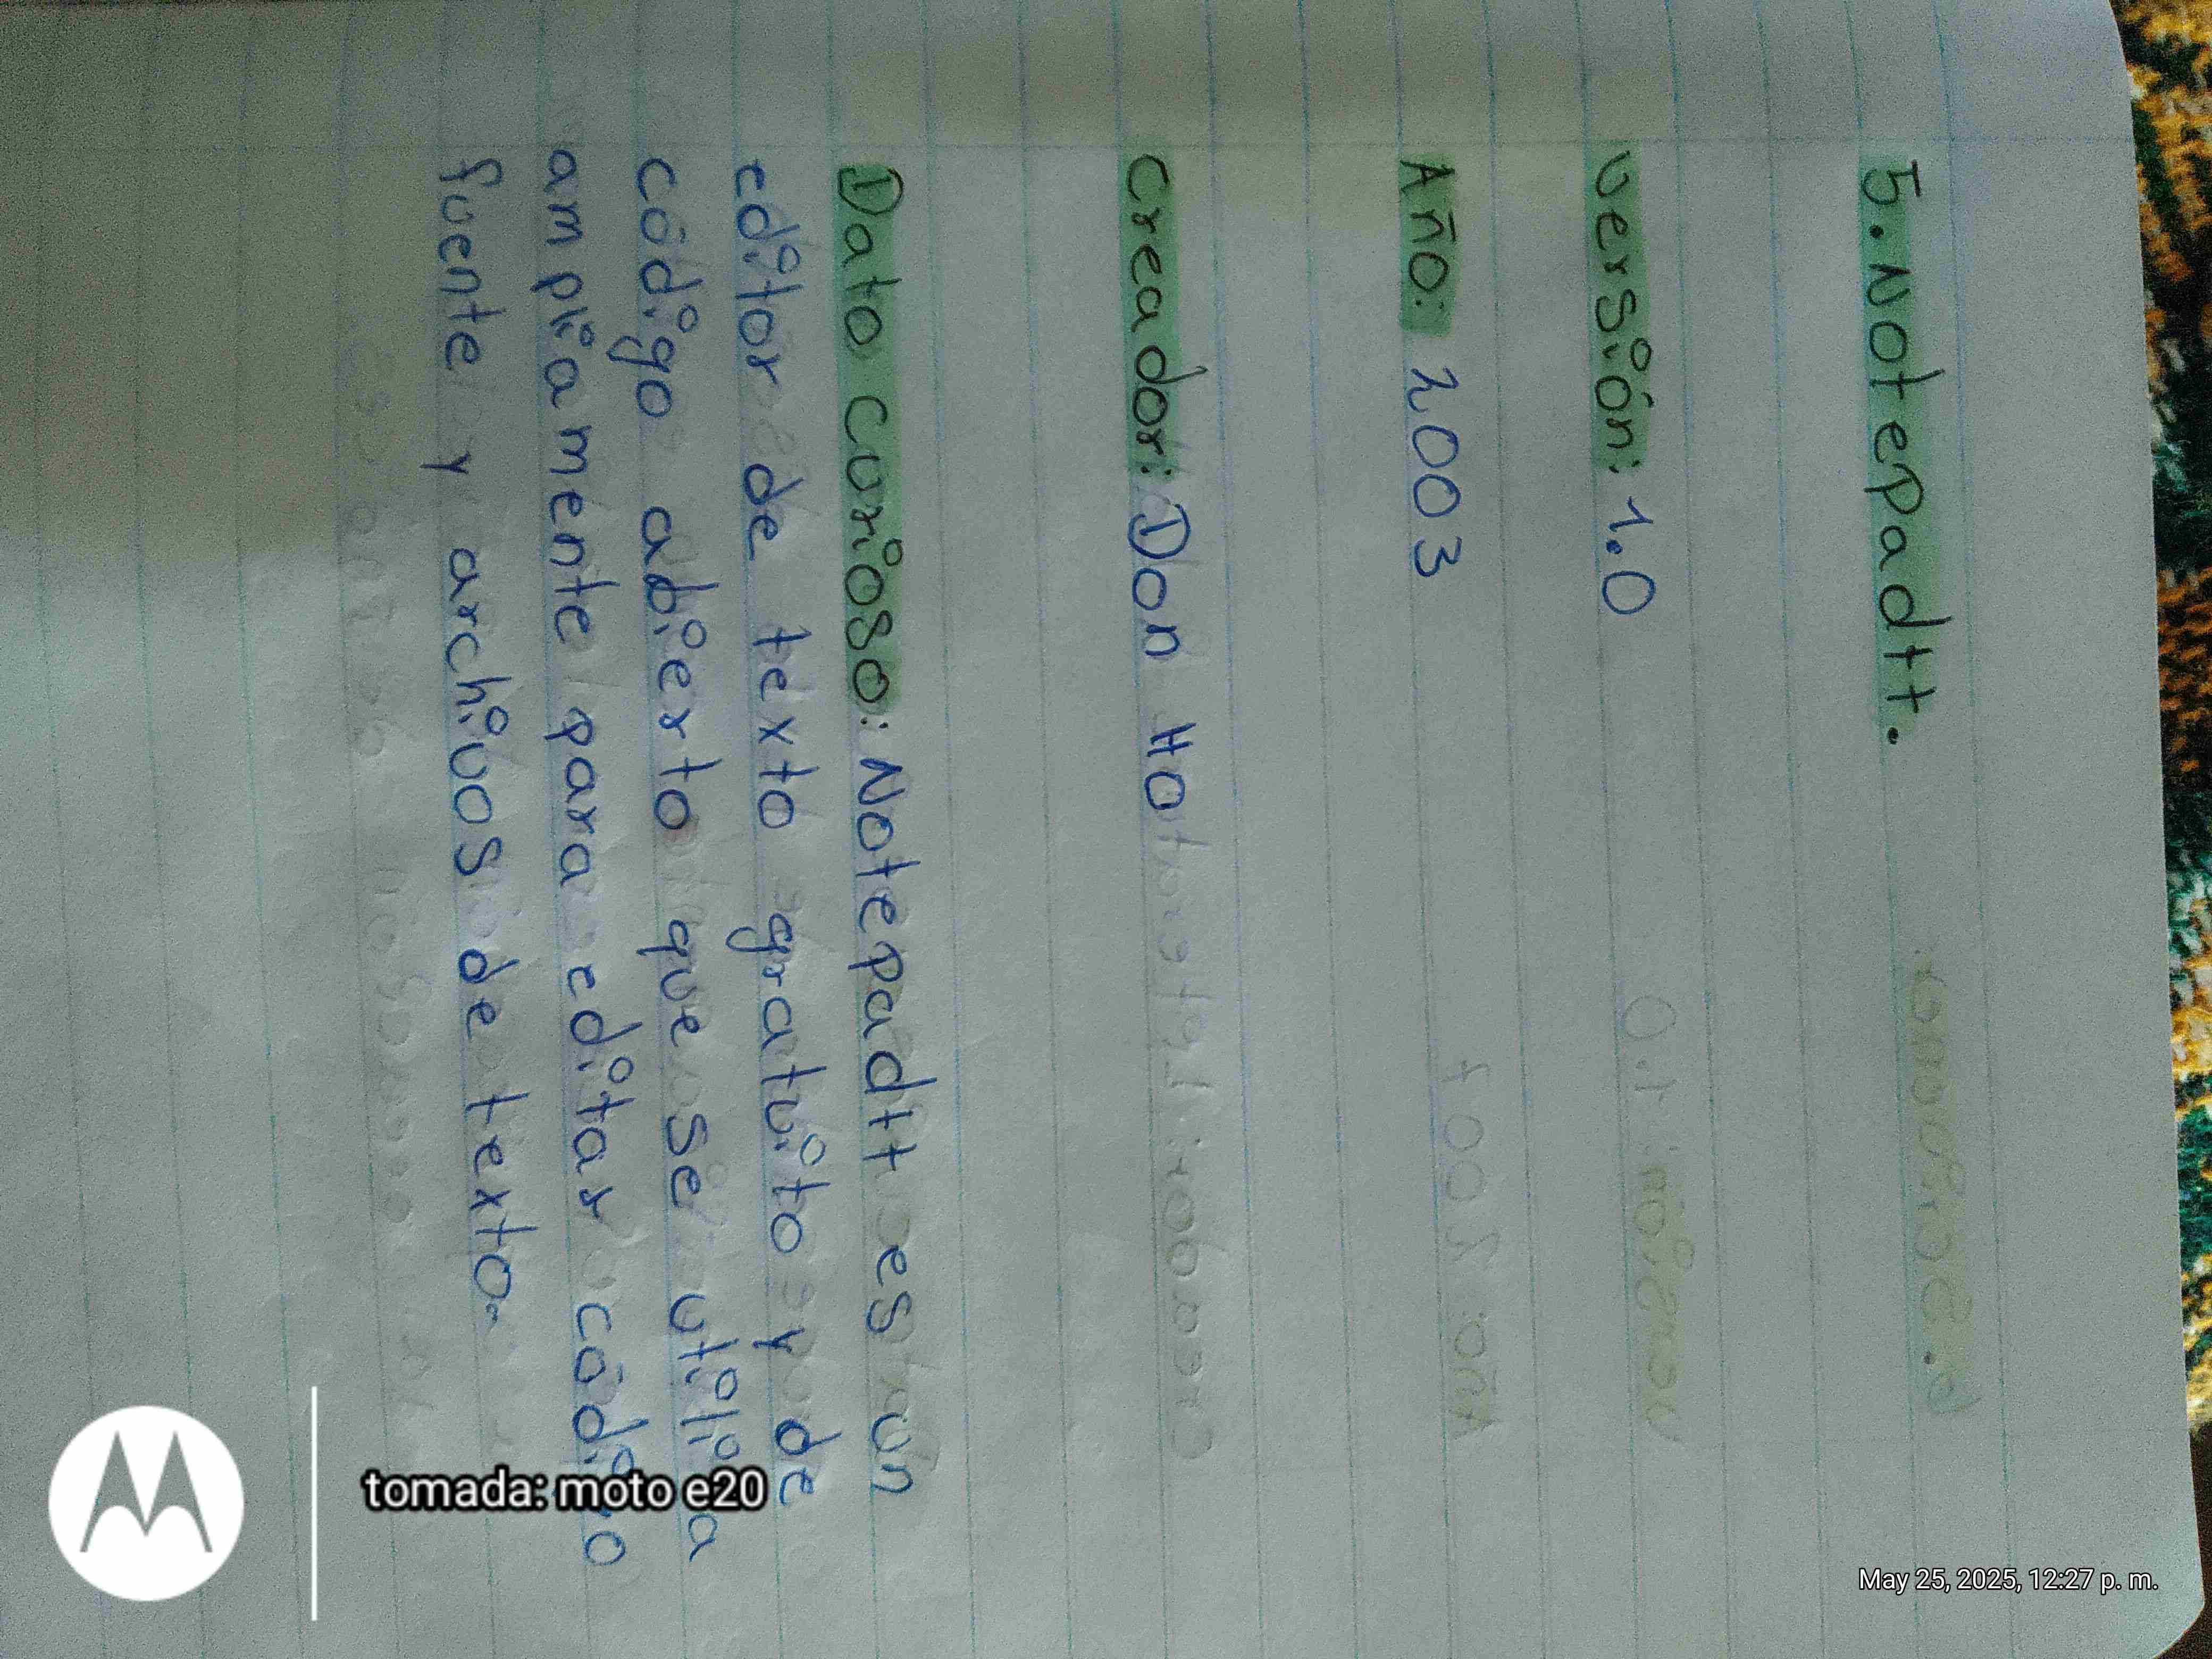 5. Notepadtt.
Versión: 1.0
Año: 2003
Creador: Don Ho
Dato curioso: Notepadtt es un
editor de texto gratuito y de
código abierto que se utiliza
ampliamente para editar código
fuente y archivos de texto.
tomada: moto e20
May 25, 2025, 12:27 p. m.